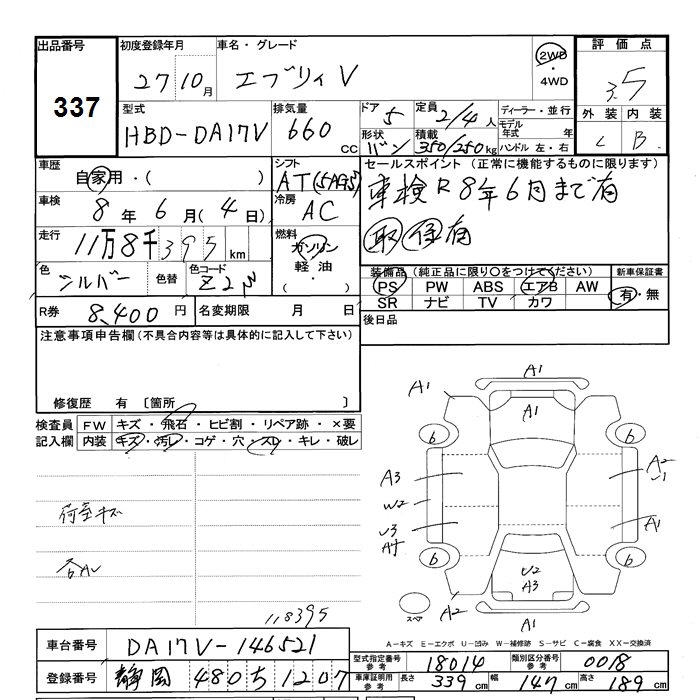 出品番号 337
初度登録年月 27 10月
車名・グレード エブリィ V
2WD・4WD
評価点 3.5
外装 C 内装 B
型式 HBD-DA17V
排気量 660 cc
ドア 5
定員 2/4 人
形状 バン
積載 350/250 kg
ディーラー・並行
モデル年式 年
ハンドル 左・右
車歴 自家用・( )
車検 8年 6月(4日)
走行 11万8千395 km
色 シルバー 色替
色コード Z2S
シフト AT(5AGS)
冷房 AC
燃料 ガソリン 軽油 ( ・ )
セールスポイント(正常に機能するものに限ります)
車検R8年6月まで有
取 保有
装備品(純正品に限り○をつけてください)
PS PW ABS エアB AW
SR ナビ TV カワ
新車保証書 有・無
R券 8,400円
名変期限 月 日
後日品
注意事項申告欄(不具合内容等は具体的に記入して下さい)
修復歴 有〔箇所 〕
検査員記入欄
FW キズ・飛石・ヒビ割・リペア跡・×要
内装 キズ・汚レ・コゲ・穴・スレ・キレ・破レ
荷室キズ
118395
A1
A1
A1
6
6
A3
A2
W2
U1
U3
A1
6
6
U2
A3
スペア
A2
A1
A-キズ E-エクボ U-凹み W-補修跡 S-サビ C-腐食 XX-交換済
車台番号 DA17V-146521
登録番号 静岡 480ち1207
型式指定番号参考 18014
類別区分番号参考 0018
車庫証明用参考 長さ 339 cm 幅 147 cm 高さ 189 cm